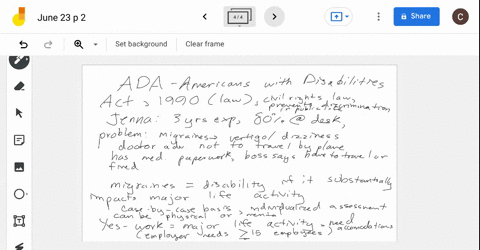 June 23 p 2
4/4
Share
C
Set background
Clear frame
ADA - Americans with Disabilities
Act, 1990 (law), civil rights law,
prevents discrimination
in public
Jenna: 3 yrs exp, 80% @ desk,
problem: migraines vertigo/dizziness
doctor adv not to travel by plane
has med. paperwork, boss says have to travel or
fired
migraines = disability if it substantially
impacts major life activity
case-by-case basis, individualized assessment
can be physical or mental
Yes - work = major life activity - need
(employer needs ≥15 employees)